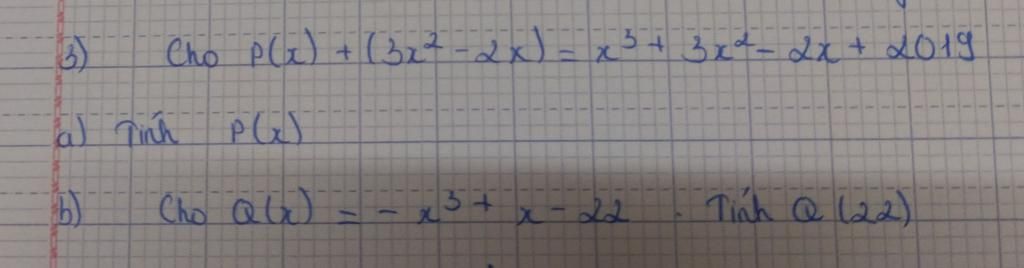 3) Cho P(x) + (3x² - 2x) = x³ + 3x² - 2x + 2019
a) Tính P(x)
b) Cho Q(x) = - x³ + x - 22 . Tính Q (22)